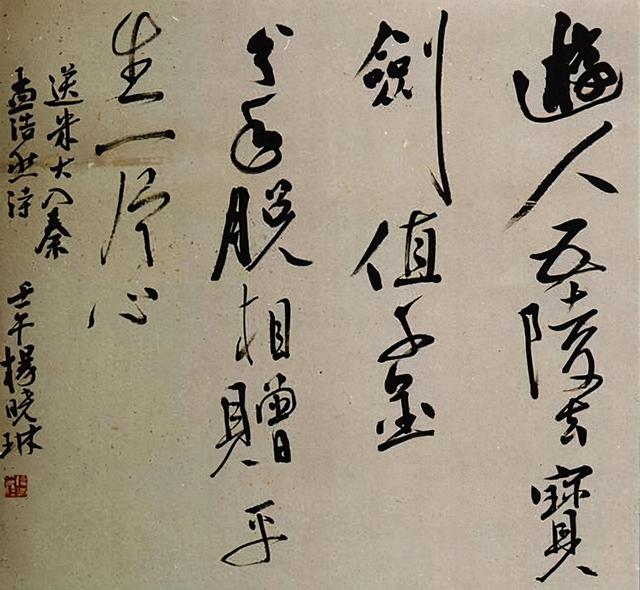 遊人五陵去寶
劍值千金
分手脱相贈平
生一片心
送朱大入秦
孟浩然詩
壬午楊曉琳